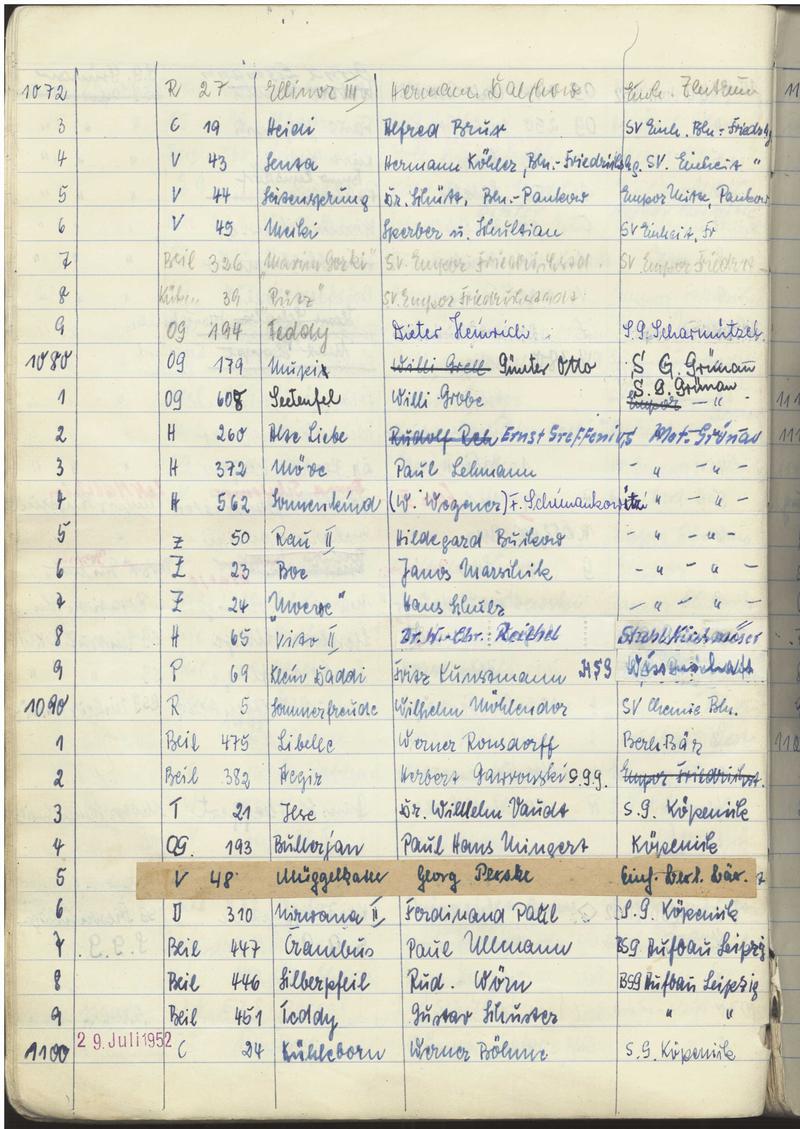 1072 R 27 Ellinor III Hermann
3 C 19 Heidi Alfred Brux SV Einh. Bln.-Friedshg
4 V 43 Senta Hermann Köhler, Bln.-Friedrichshg. SV. Einheit "
5 V 44 Seitensprung Dr. Schütt, Bln.-Pankow Empor Mitte, Pankow
6 V 45 Meiki Sperber u. SV Einheit, Fr
7 Beil 326 "Maxim Gorki" SV. Empor Friedrichstadt. SV Empor Friedrst
8 39 SV. Empor Friedrichstadt
9 OG 194 Teddy Dieter Heinrich S.G. Scharmützel.
1080 OG 179 Willi Grell Günter Otto S G. Grünau
S. G. Grünau
1 OG 608 Seeteufel Willi Grobe Empor - " -
2 H 260 Alte Liebe Rudolf Reh Ernst Greffenius Mot. Grünau
3 H 372 Möve Paul Lehmann - " - " -
4 H 562 Sonnenkind (W. Wogener) F. Schimankowitz - " - " -
5 Z 50 Rau II Hildegard Buckow - " - " -
6 Z 23 Boe Janos - " - " -
7 Z 24 "Moewe" Hans Schulz - " - " -
8 H 65 Vito II Dr. W.-Chr.
9 P 69 Klein Daddi Fritz Kunstmann H59
1090 R 5 Sommerfreude Wilhelm Möhlendor SV Chemie Bln.
1 Beil 475 Libelle Werner Ronsdorff Berl. Bär
2 Beil 382 Aegir Herbert Gawronski S.G.G. Empor Friedrichst.
3 T 21 Ilse Dr. Willhelm Vaudt S.G. Köpenick
4 OG. 193 Bullerjan Paul Hans Mingert Köpenick
5 V 48 Müggelkater Georg Perske Einh. Berl. Bär.
6 D 310 Nirwana II Ferdinand Paul S.G. Köpenick
7 Beil 447 Crambus Paul Ullmann BSG Aufbau Leipzig
8 Beil 446 Silberpfeil Rud. Wörn BSG Aufbau Leipzig
9 Beil 451 Teddy Gustav Schuster " "
1100 29. Juli 1952 C 24 Kühleborn Werner Böhme S.G. Köpenick